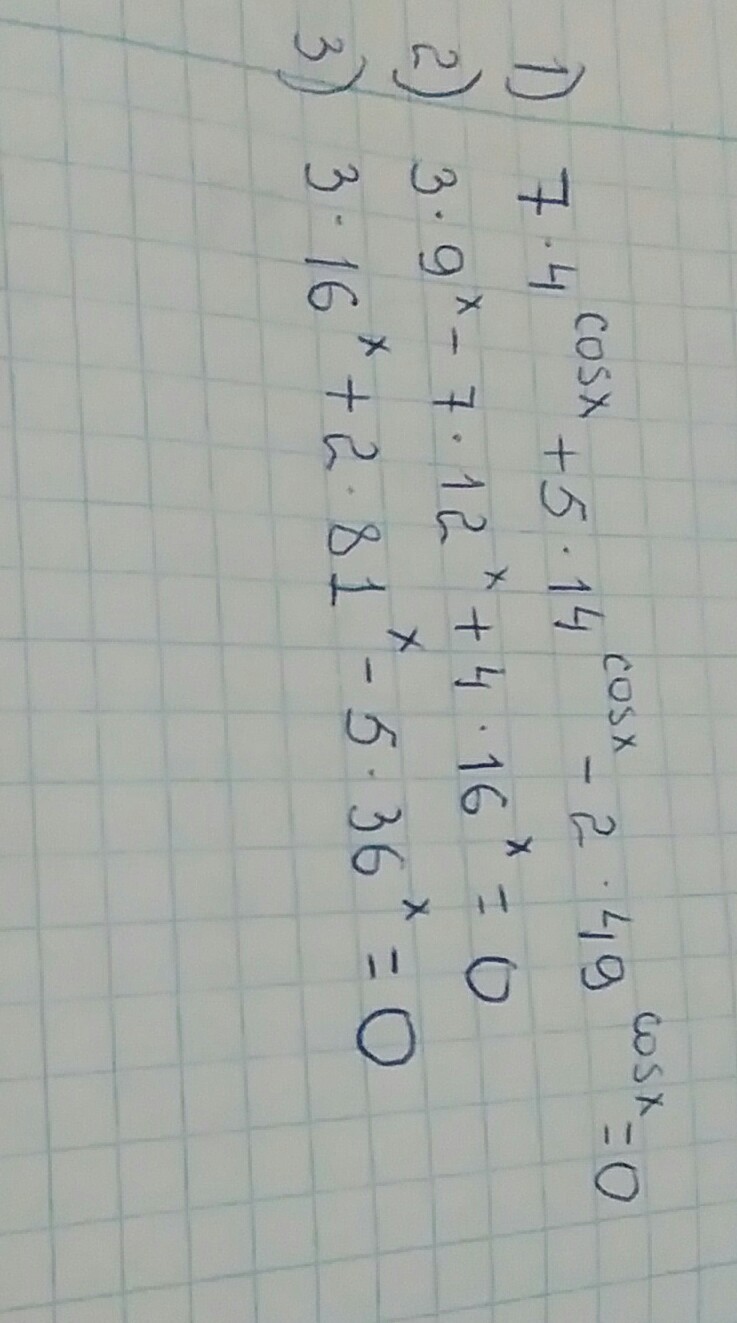 1) 7·4^cosx + 5·14^cosx - 2·49^cosx = 0
2) 3·9^x - 7·12^x + 4·16^x = 0
3) 3·16^x + 2·81^x - 5·36^x = 0